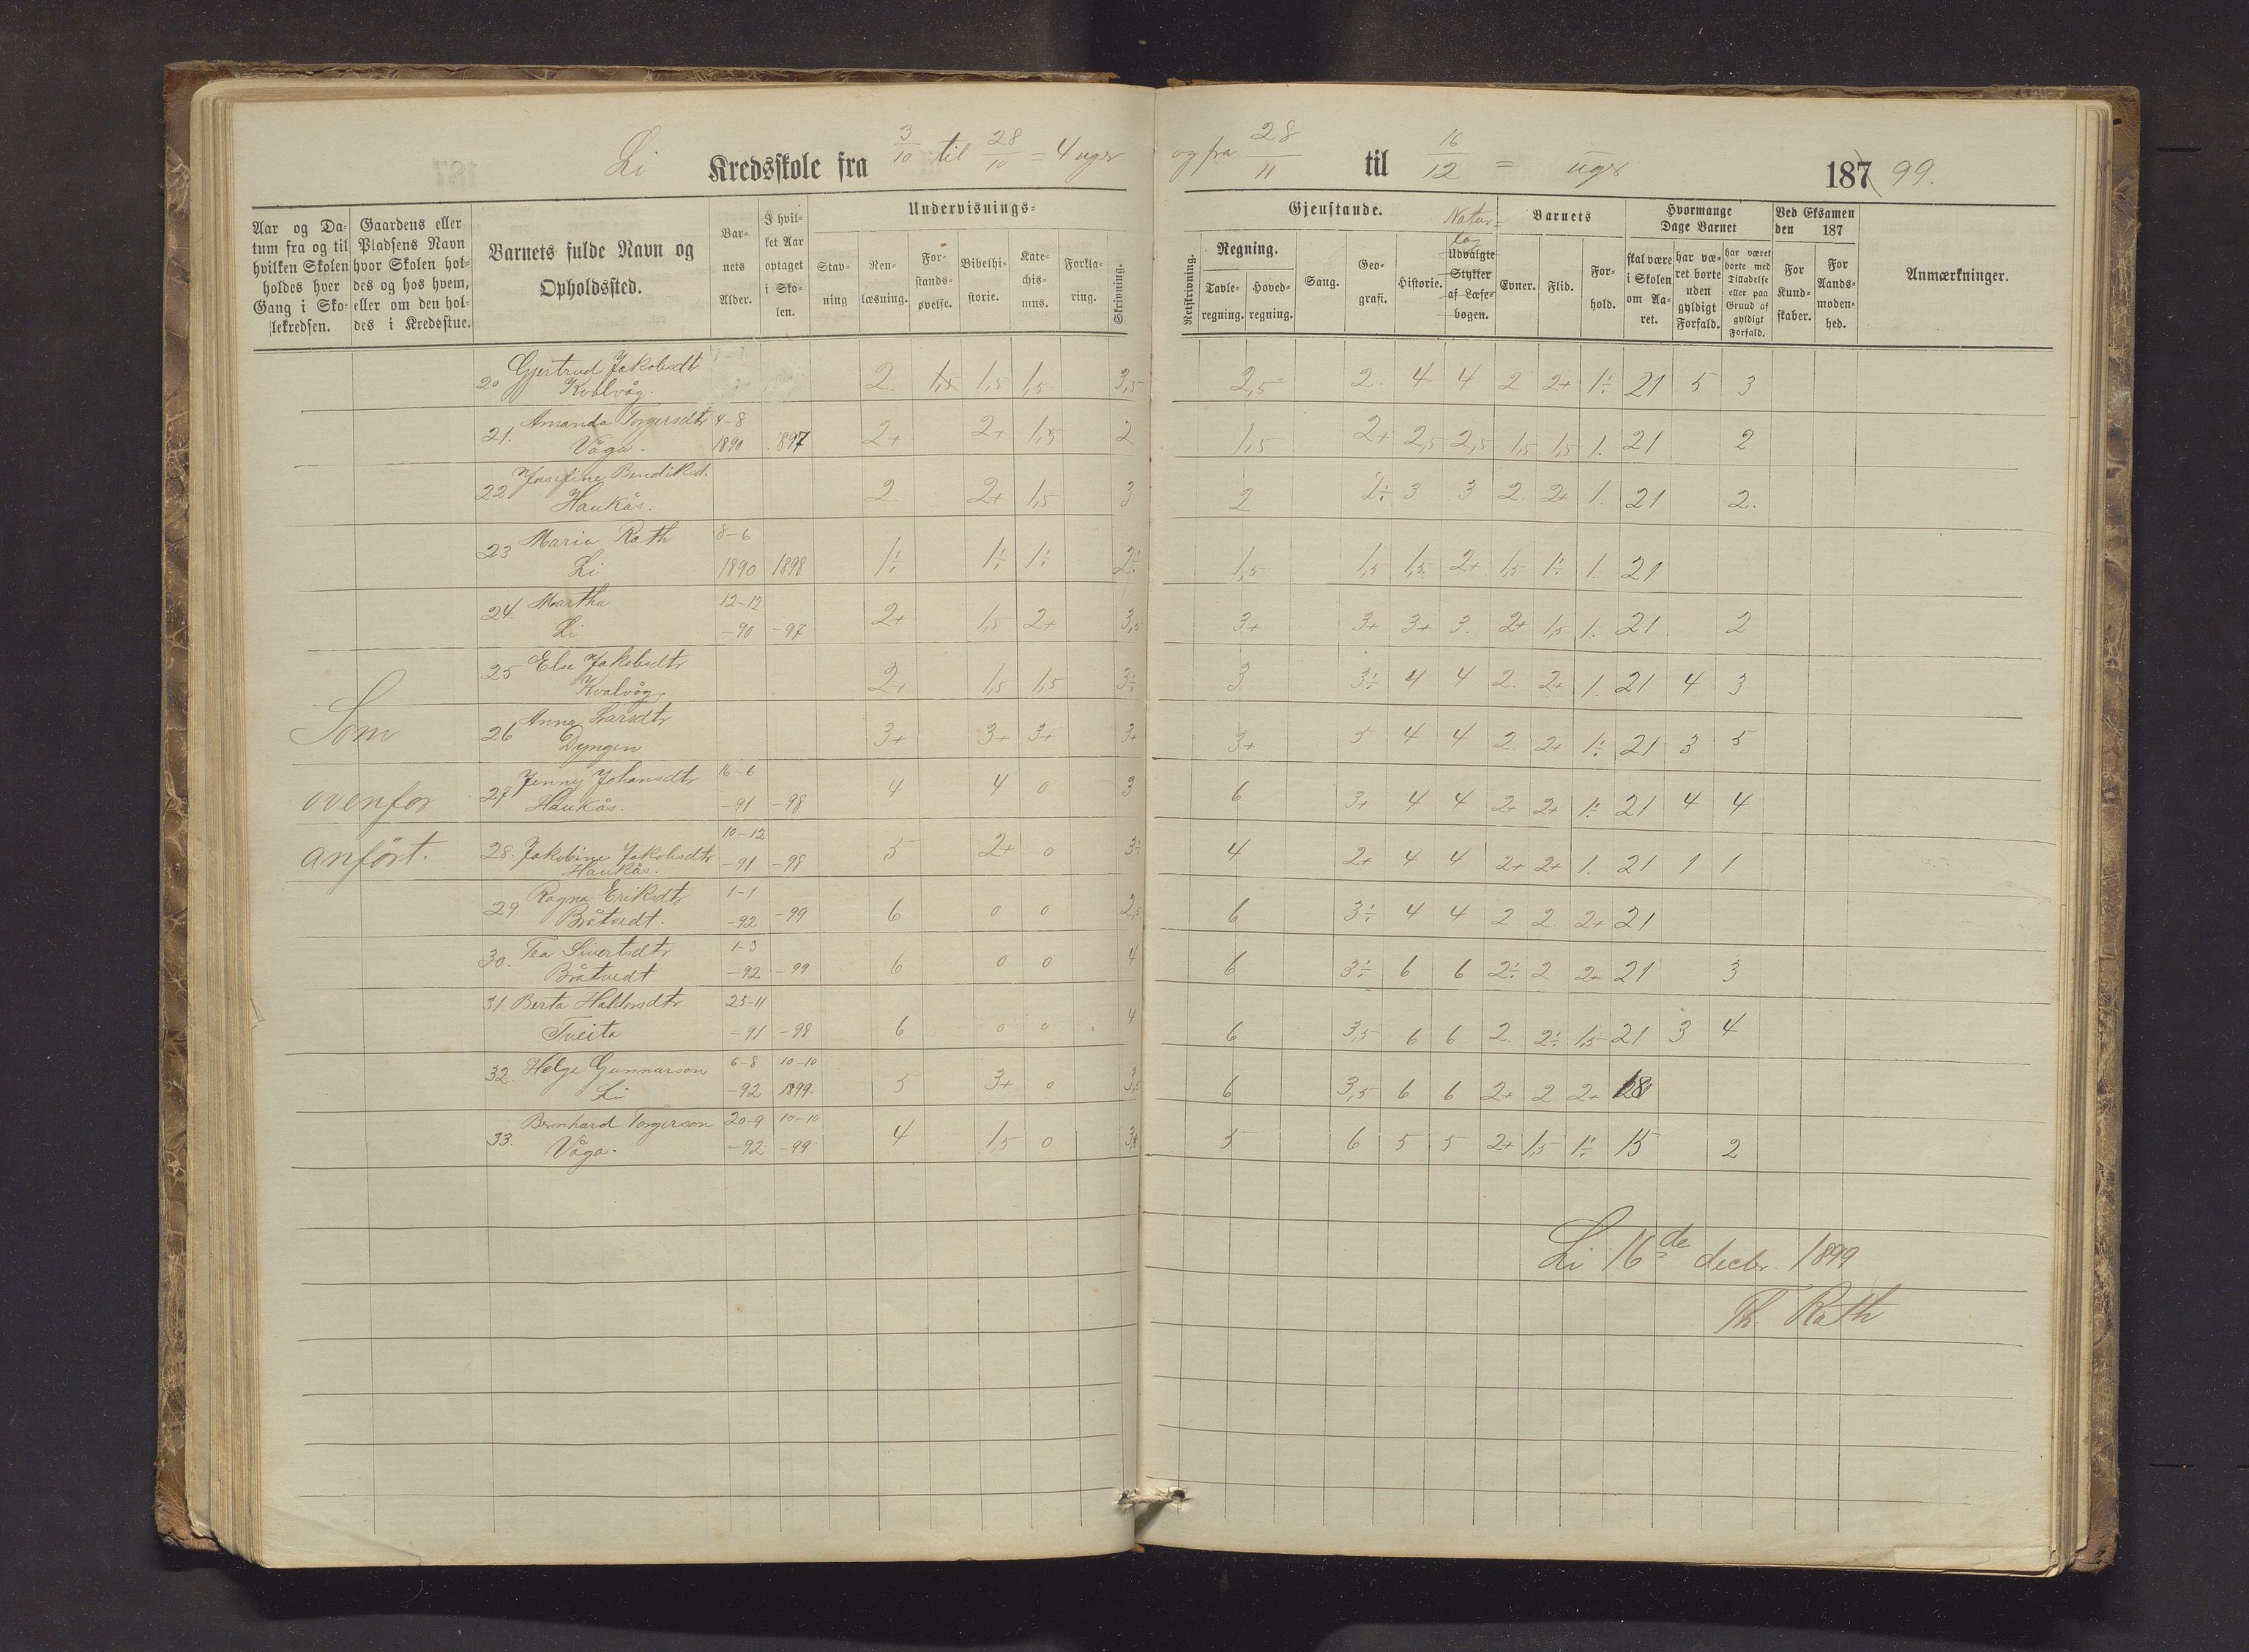 Li Kredsskole fra 3/10 til 28/10 = 4 uger og fra 28/11 til 16/12 = uger 187 99.
Aar og Datum fra og til hvilken Skolen holdes hver Gang i Skolekredsen.
Gaardens eller Pladsens Navn hvor Skolen holdes og hos hvem, eller om den holdes i Kredsstue.
Barnets fulde Navn og Opholdssted.
Barnets Alder.
I hvilket Aar optaget i Skolen.
Undervisnings-
Stavning
Renlæsning.
Forstandsøvelse.
Bibelhistorie.
Katechismus.
Forklaring.
Skrivning.
Gjenstande.
Retskrivning.
Regning.
Tavleregning.
Hovedregning.
Sang.
Geografi.
Historie.
Naturlag
Udvalgte Stykker af Læsebogen.
Barnets
Evner.
Flid.
Forhold.
Hvormange Dage Barnet
skal være i Skolen om Aaret.
har været borte uden gyldigt Forfald.
har været borte med Tilladelse eller paa Grund af gyldigt Forfald.
Ved Eksamen den 187
For Kundskaber.
For Aandsmodenhed.
Anmærkninger.
20 Gjertrud Jakobsdtr Kvalvåg. 2. 1,5 1,5 1,5 3,5 2,5 2. 4 4 2 2+ 1÷ 21 5 3
21. Amanda Torgersdtr Våga. 4-8 1890 1897 2+ 2+ 1,5 2 1,5 2+ 2,5 2,5 1,5 1,5 1. 21 2
22 Josefine Bendiksd. Haukås. 2. 2+ 1,5 3 2 2÷ 3 3 2. 2+ 1. 21 2.
23 Maria Rath Li 8-6 1890 1898 1÷ 1÷ 1÷ 2÷ 1,5 1,5 1,5 2+ 1,5 1÷ 1. 21
24. Martha Li 12-12 -90 -97 2+ 1,5 2+ 3,5 3+ 3+ 3+ 3. 2+ 1,5 1. 21 2
25 Else Jakobsdtr Kvalvåg. 2+ 1,5 1,5 3÷ 3 3÷ 4 4 2. 2+ 1. 21 4 3
Som
26 Anna Larsdtr Dyngen 3+ 3+ 3+ 3+ 3+ 5 4 4 2. 2+ 1÷ 21 3 5
ovenfor
27 Jenny Johansdtr Haukås. 16-6 -91 -98 4 4 0 3 6 3+ 4 4 2+ 2+ 1÷ 21 4 4
anført.
28. Jakobine Jakobsdtr Haukås. 10-12 -91 -98 5 2+ 0 3÷ 4 2+ 4 4 2+ 2+ 1. 21 1 1
29 Ragna Eriksdtr Bråtvedt. 1-1 -92 -99 6 0 0 2,5 6 3÷ 4 4 2 2 2+ 21
30. Tea Sivertsdtr Bråtvedt 1-3 -92 -99 6 0 0 4 6 3÷ 6 6 2÷ 2 2+ 21 3
31. Berta Haldorsdtr Tveita 23-11 -91 -98 6 0 0 4 6 3,5 6 6 2. 2÷ 1,5 21 3 4
32. Helge Gunnarson Li 6-8 -92 10-10 1899. 5 3+ 0 3,5 6 3,5 6 6 2+ 2 2+ 18
33. Bernhard Torgerson Våga. 20-9 -92 10-10 -99 4 1,5 0 3+ 5 6 5 5 2+ 1,5 1÷ 15 2
Li 16de decbr. 1899
Th. Rath